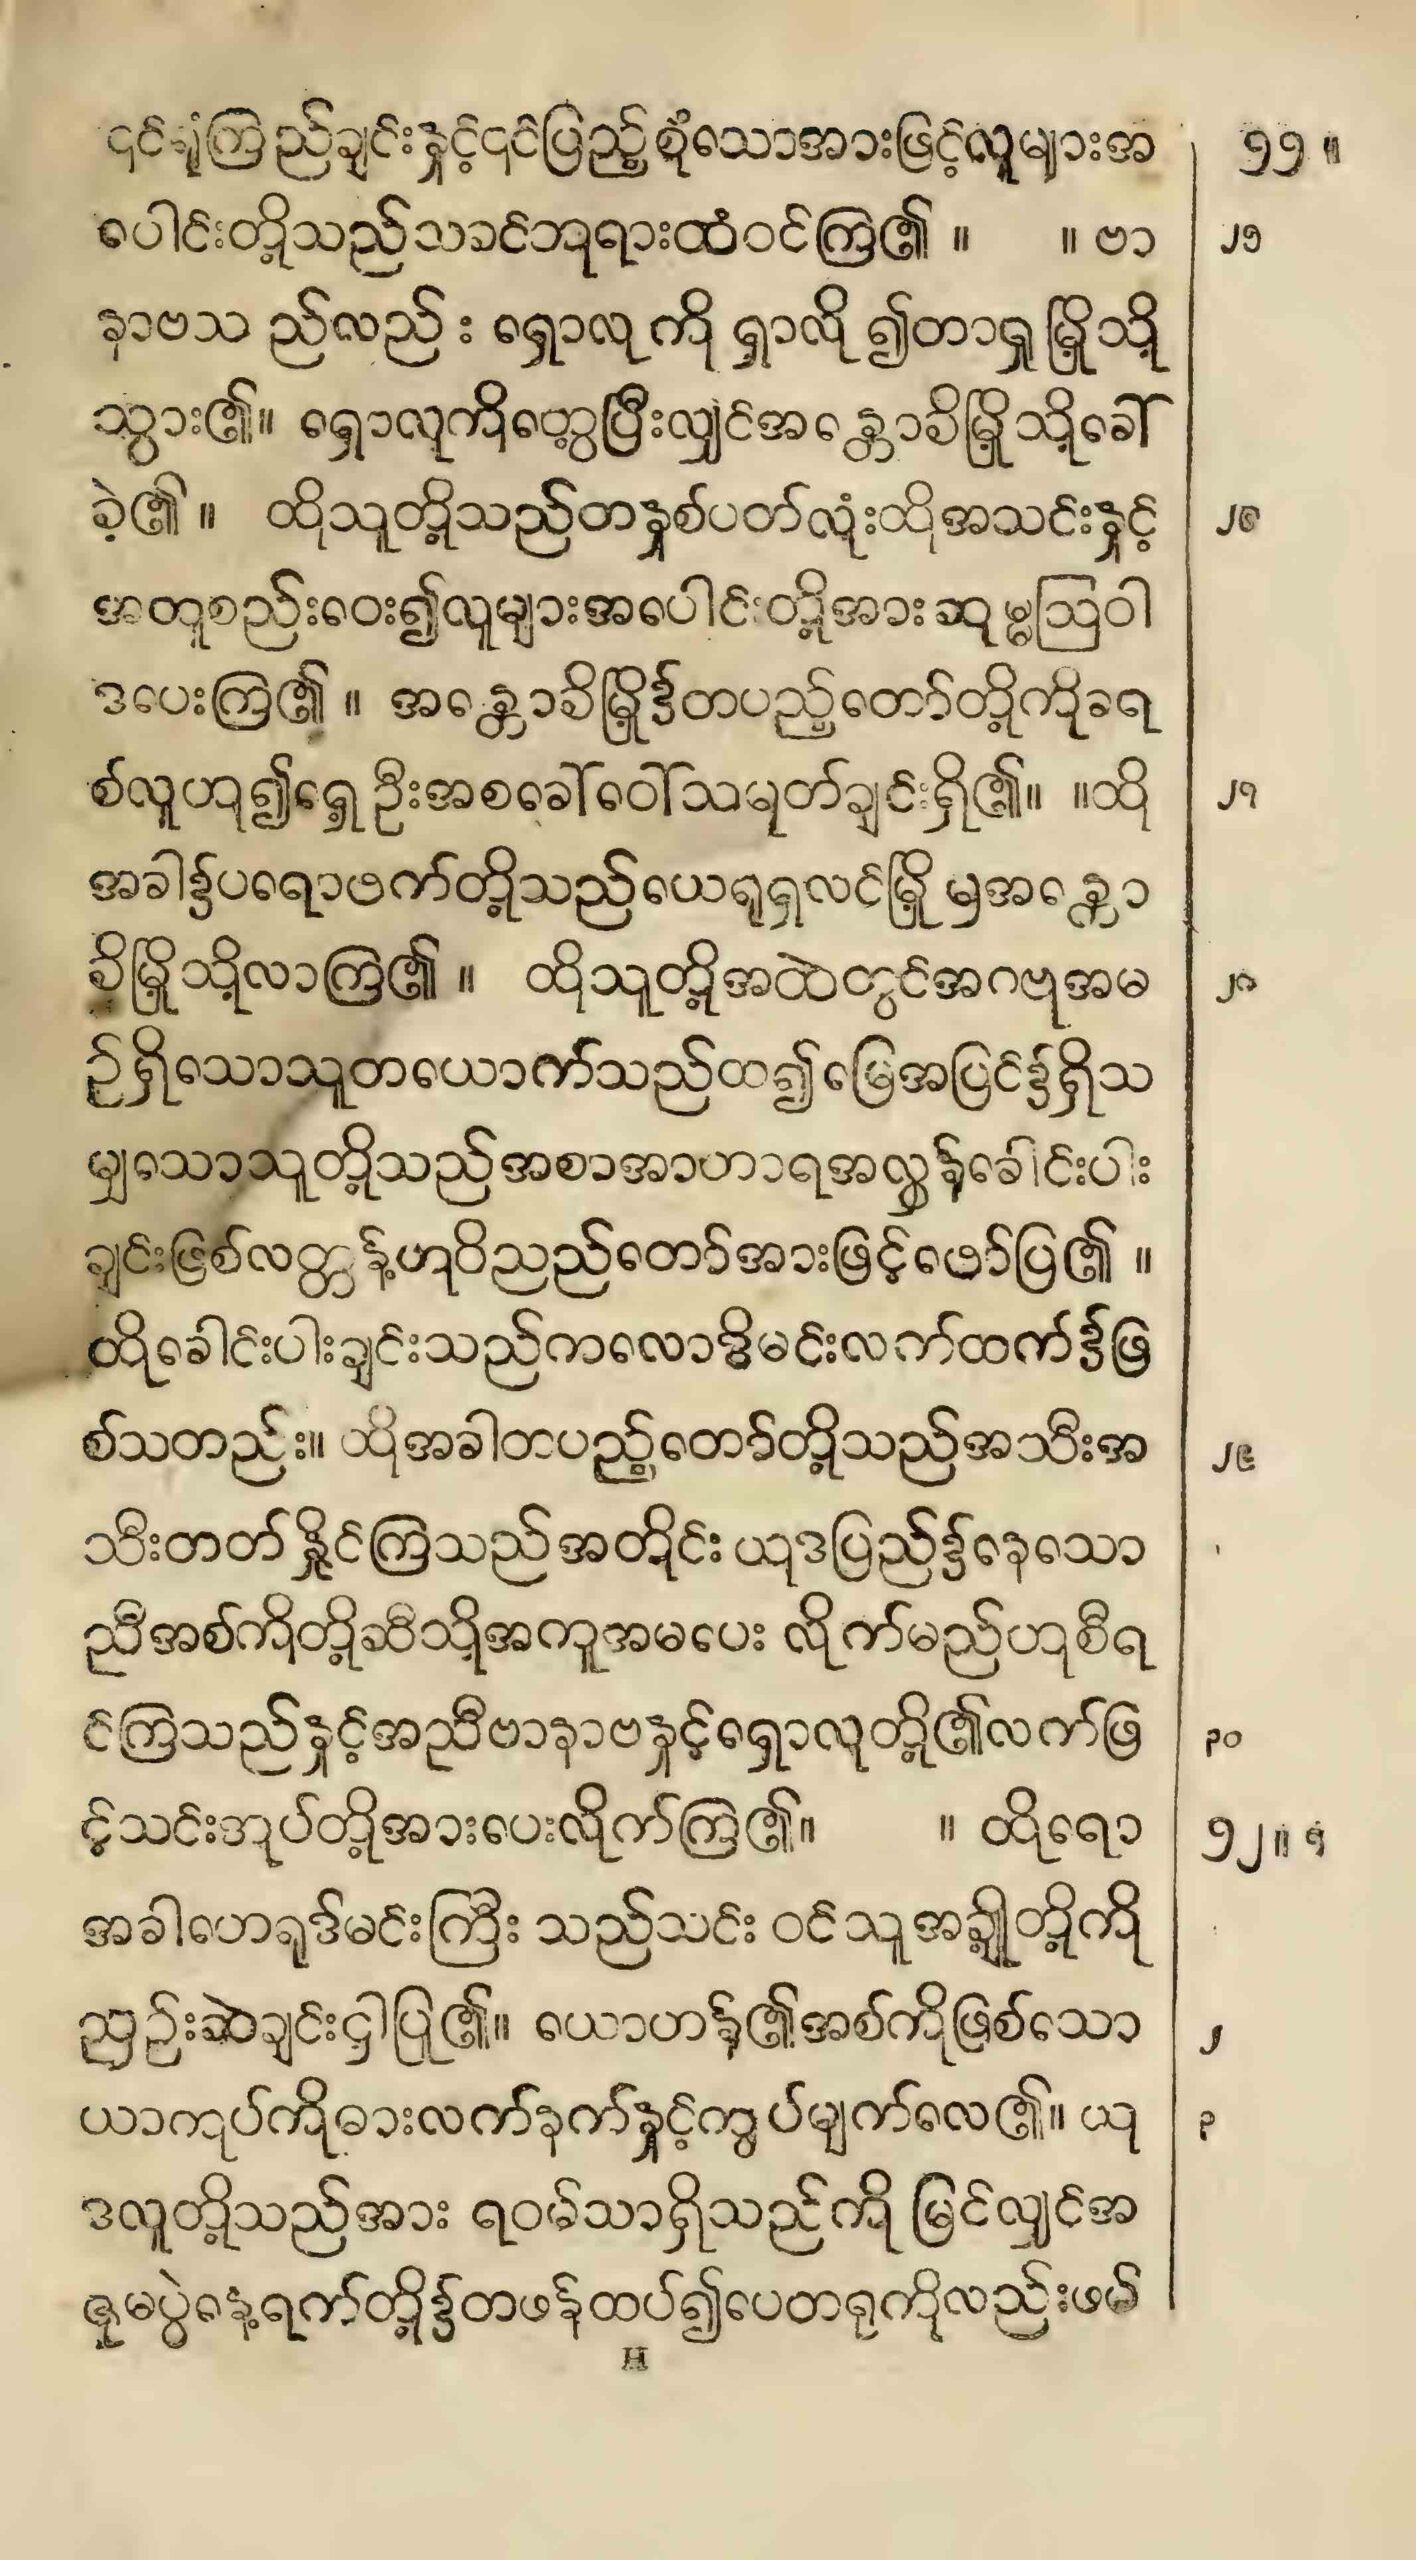 ၎င်ယုံကြည်ချင်းနှင့်၎င်ပြည့်စုံသောအားဖြင့်လူများအ ၅၅ ။
ပေါင်းတို့သည်သခင်ဘုရားထံဝင်ကြ၏ ။ ။ ဗာ ၂၅
နာဗသည်လည်း ရှောလုကို ရှာလို ၍တာရှုမြို့သို့
သွား၏။ ရှောလုကိုတွေ့ပြီးလျှင်အန္တောခိမြို့သို့ခေါ်
ခဲ့၏ ။ ထိုသူတို့သည်တနှစ်ပတ်လုံးထိုအသင်းနှင့် ၂၆
အတူစည်းဝေး၍လူများအပေါင်းတို့အားဆုမ္မဩဝါ
ဒပေးကြ၏ ။ အန္တောခိမြို့၌တပည့်တော်တို့ကိုခရ
စ်လူဟု၍ရှေ့ဦးအစခေါ်ဝေါ်သမုတ်ချင်းရှိ၏။ ။ထို ၂၇
အခါ၌ပရောဖက်တို့သည်ယေရုရှလင်မြို့မှအန္တော
ခိမြို့သို့လာကြ၏ ။ ထိုသူတို့အထဲတွင်အဂဗုအမ ၂၈
ဉ်ရှိသောသူတယောက်သည်ထ၍မြေအပြင်၌ရှိသ
မျှသောသူတို့သည်အစာအာဟာရအလွန်ခေါင်းပါး
ချင်းဖြစ်လတ္တန့်ဟုဝိညည်တော်အားဖြင့်ဖော်ပြ၏ ။
ထိုခေါင်းပါးချင်းသည်ကလောဒိမင်းလက်ထက်၌ဖြ
စ်သတည်း။ ထိုအခါတပည့်တော်တို့သည်အသီးအ ၂၉
သီးတတ်နိုင်ကြသည်အတိုင်း ယုဒပြည်၌နေသော
ညီအစ်ကိုတို့ဆီသို့အကူအမပေး လိုက်မည်ဟုစီရ
င်ကြသည်နှင့်အညီဗာနာဗနှင့်ရှောလုတို့၏လက်ဖြ ၃၀
င့်သင်းအုပ်တို့အားပေးလိုက်ကြ၏။ ။ ထိုရော ၅၂။ ၅
အခါဟေရုဒ်မင်းကြီး သည်သင်း ဝင်သူအချို့တို့ကို
ညှဉ်းဆဲချင်းငှါပြု၏။ ယောဟန်၏အစ်ကိုဖြစ်သော ၂
ယာကုပ်ကိုဓားလက်နက်နှင့်ကွပ်မျက်လေ၏။ ယု ၃
ဒလူတို့သည်အား ရဝမ်သာရှိသည်ကို မြင်လျှင်အ
ဇုမပွဲနေ့ရက်တို့၌တဖန်ထပ်၍ပေတရုကိုလည်းဖမ်
H